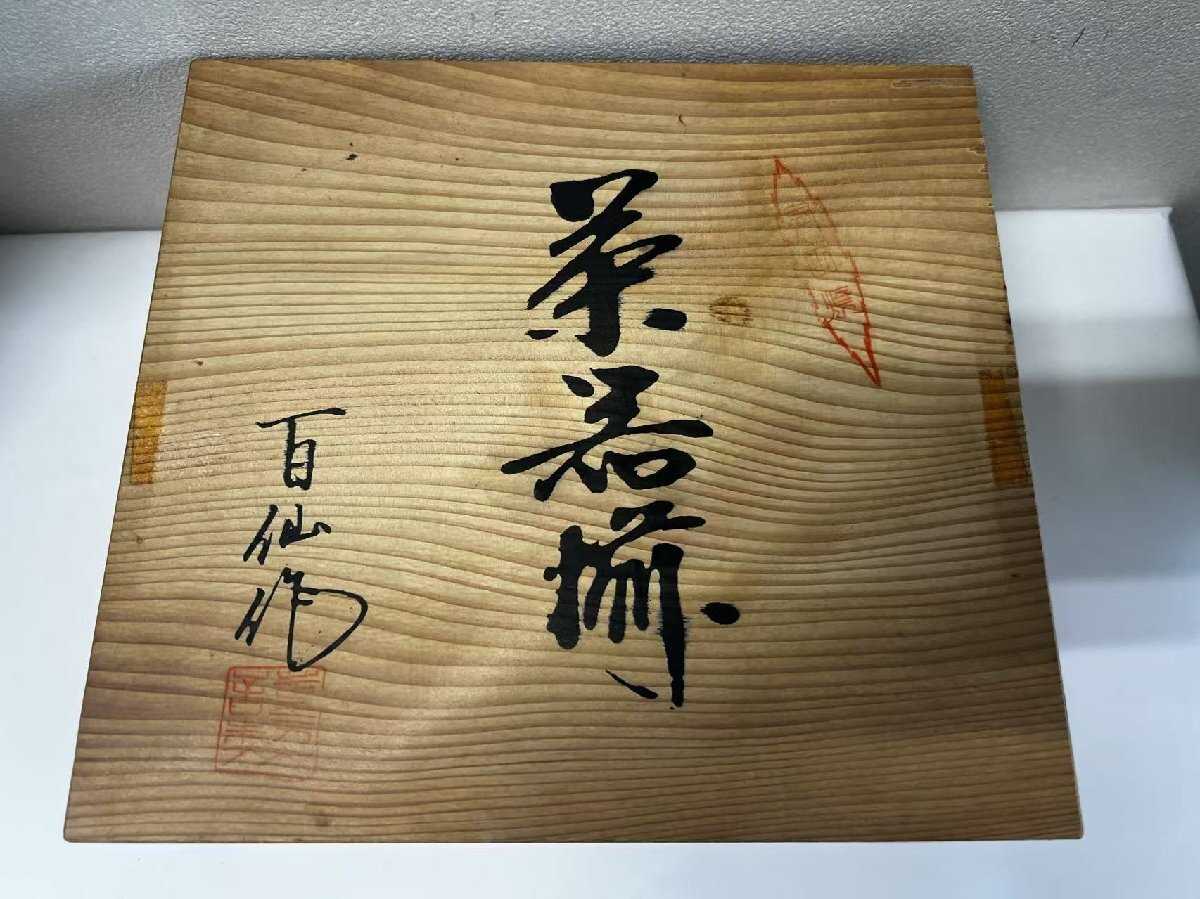 茶器揃
百仙作